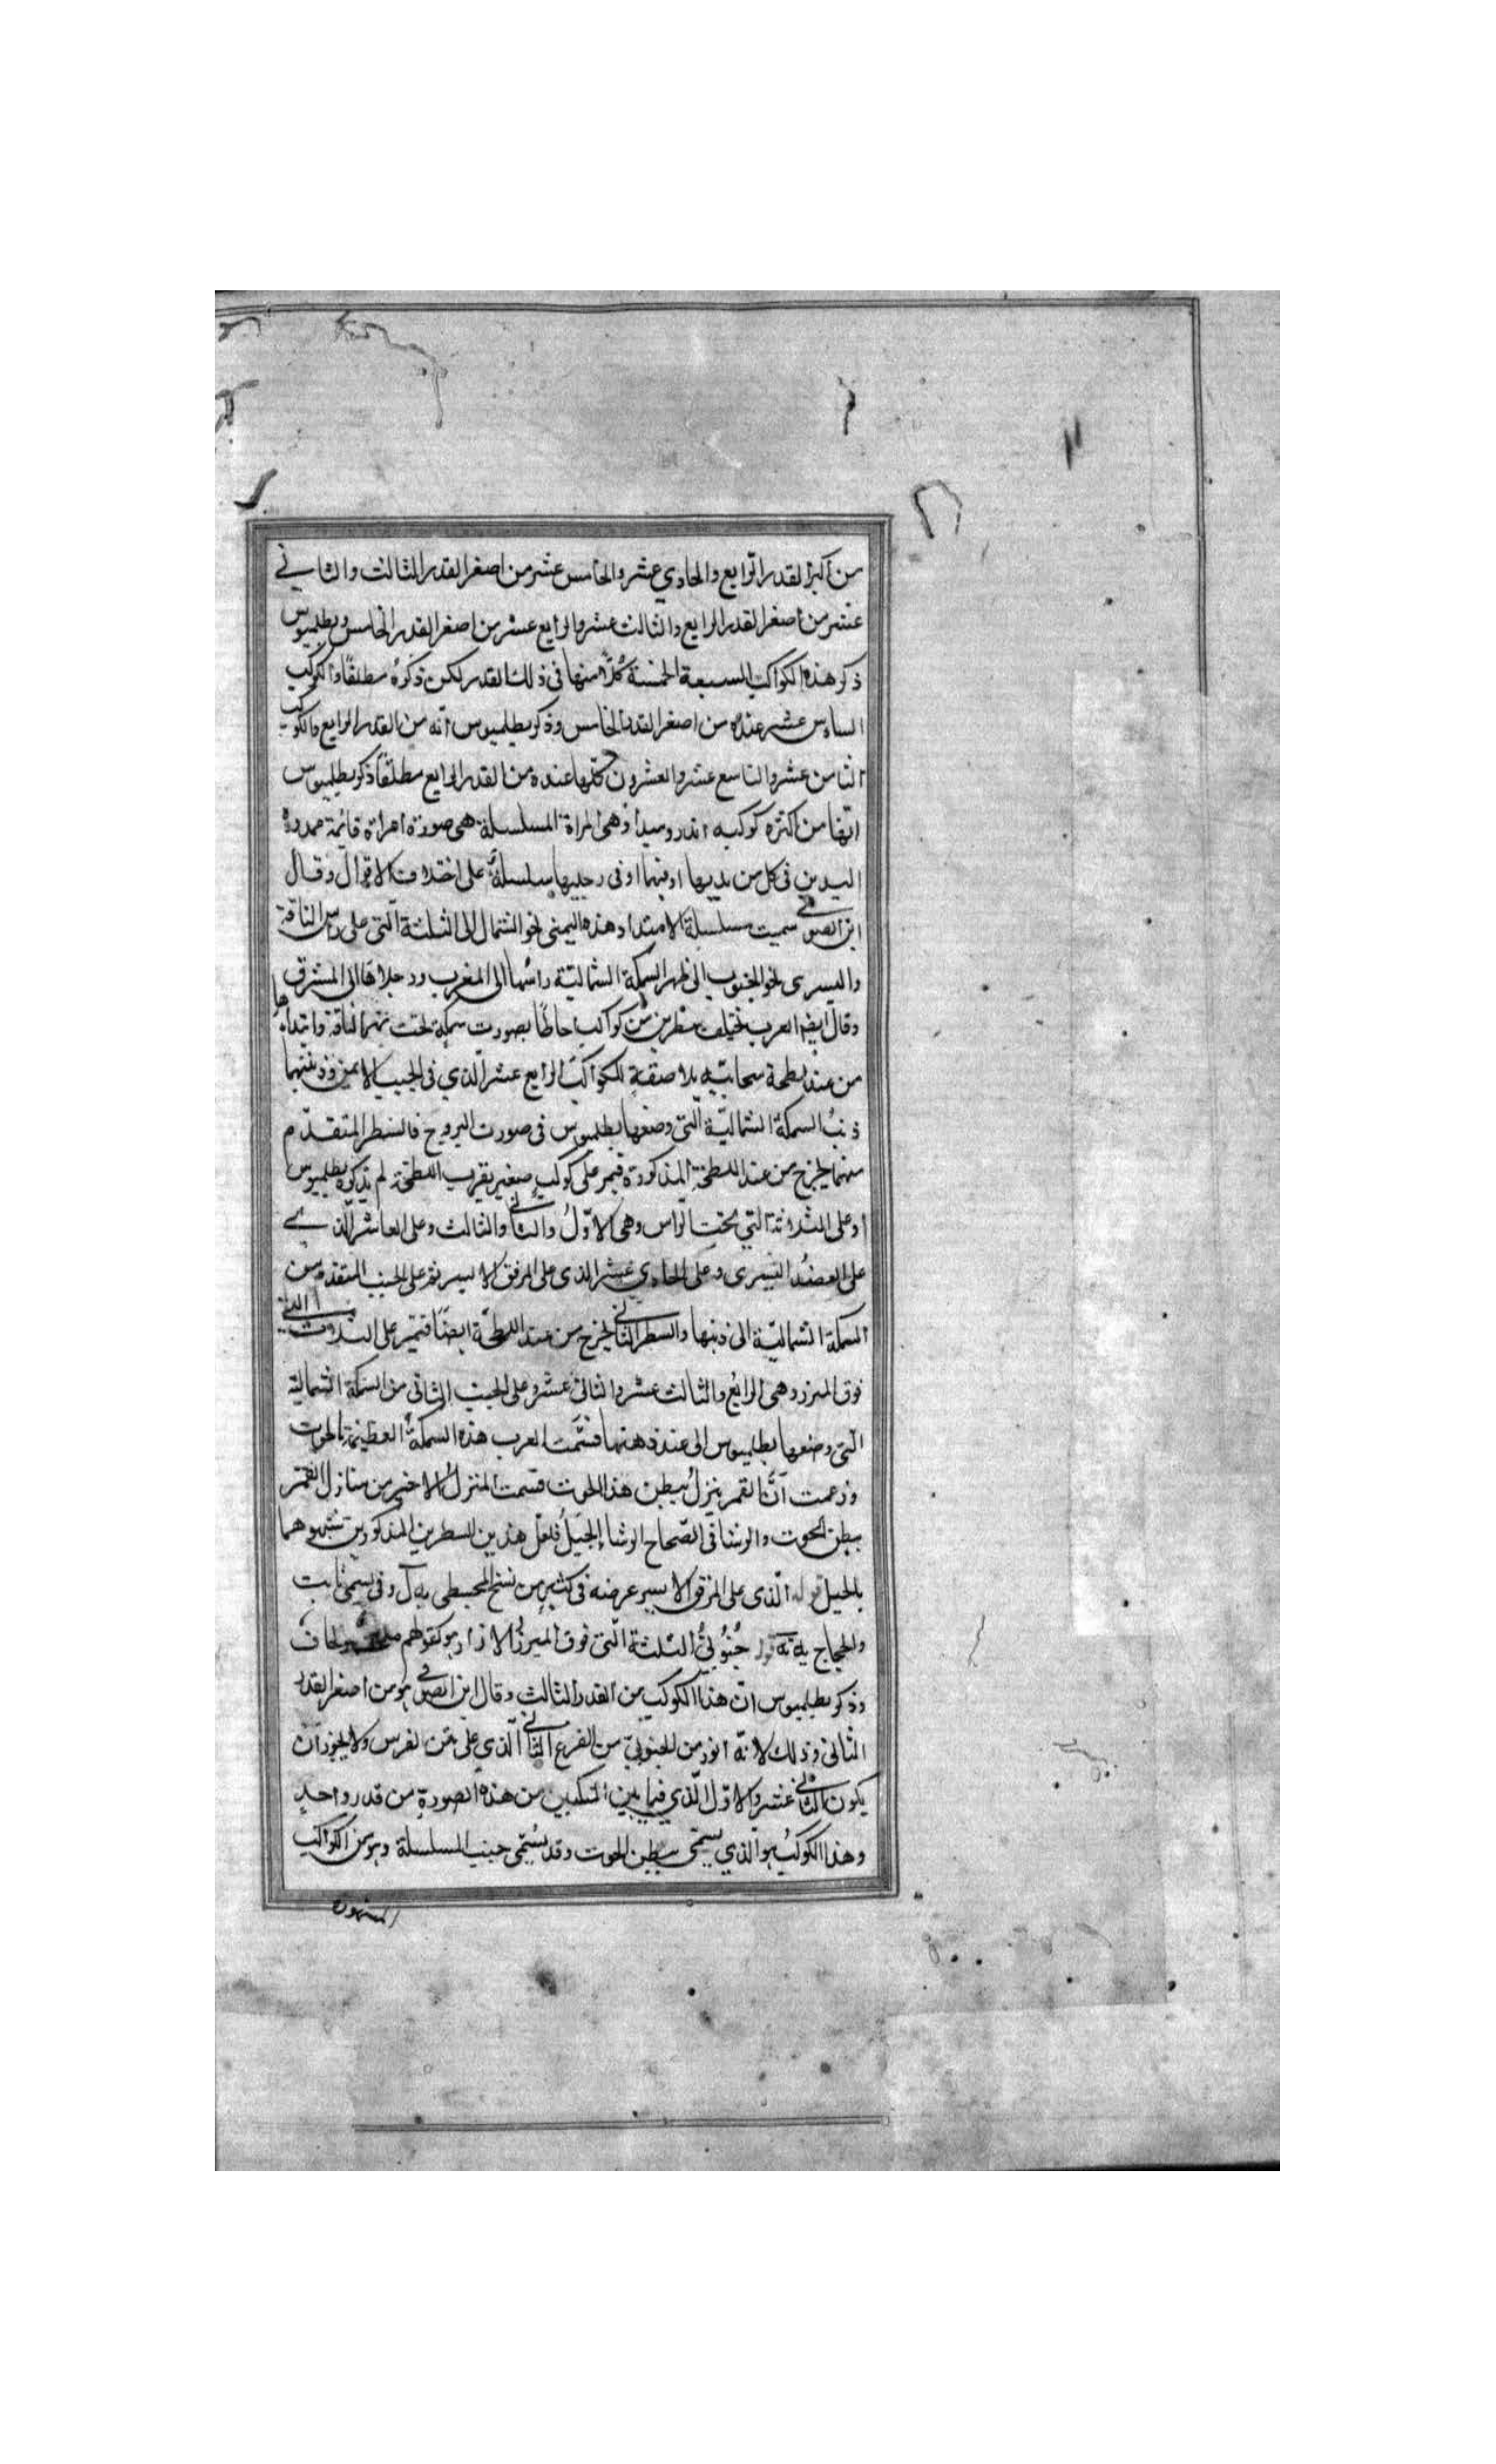 من اكبر القدر الرابع والحادي عشر والخامس عشر من اصغر القدر الثالث والثاني
عشر من اصغر القدر الرابع والثالث عشر والرابع عشر من اصغر القدر الخامس وبطلميوس
ذكر هذه الكواكب السبعة الخمسة كلا منها فى ذلك القدر لكن ذكره مطلقا والكوكب
السادس عشر عنده من اصغر القدر الخامس وذكر بطلميوس انه من القدر الرابع والكوكب
الثامن عشر والتاسع عشر والعشرون كلها عنده من القدر الرابع مطلقا ذكر بطلميوس
انها من اكثره كوكبه اندروميدا وهى المراة المسلسلة هى صورة امراة قائمة ممدودة
اليدين فى كل من يديها او فيهما او فى رجليها سلسلة على اختلاف الاقوال وقال
ابن الصوفي سميت مسلسلة لامتداد هذه اليمنى نحو الشمال الى الثلثة التى على راس الناقة
واليسرى نحو الجنوب الى ظهر السمكة الشمالية راسها الى المغرب ورجلاها الى المشرق
وقال ايضا العرب تختلف سطرين من كواكب احاطا بصورت سمكة تحت نهر الناقة وابتداءها
من عند لطخة سحابية بلاصقة للكواكب الرابع عشر الذي فى الجيب الايمن وذنبها
ذنب السمكة الشمالية التى وضعها بطلميوس فى صورت البروج فالسطر المتقدم
منهما يخرج من عند اللطخة المذكورة فيمر على كوكب صغير بقرب اللطخة لم يذكره بطلميوس
او على الثلاثة التي تحت الراس وهى الاول والثاني والثالث وعلى العاشر الذي
على العضد اليسرى وعلى الحادي عشر الذى على المرفق الايسر ثم على الجنب المتقدم من
السمكة الشمالية الى ذنبها والسطر الثاني يخرج من عند اللطخة ايضا فتمر على الثلاث التي
فوق الميزر وهى الرابع والثالث عشر والثانى عشر وعلى الجنب الثانى من السمكة الشمالية
التى وضعها بطلميوس الى عند ذهنها فسمت العرب هذه السمكة العظيمة بالحوت
وزعمت ان القمر ينزل ببطن هذا الحوت فسمت المنزل الاخير من منازل القمر
ببطن الحوت والرشا فى الصحاح الرشا الحبل فلعل هذين السطرين المذكورين شبهوهما
بالحبل قوله الذى على المرفق الايسر عرضه فى كثير من نسخ المجسطى يه ل وفى نسختى ثابت
والحجاج يه نه قوله جنوبي الثلثة التى فوق الميزر الازار هو كقولهم ملحف ولحاف
وذكر بطلميوس ان هذا الكوكب من القدر الثالث وقال ابن الصوفي هو من اصغر القدر
الثانى وذلك لانه انور من الجنوبي من الفرع الثاني الذي على متن الفرس ولا يجوز ان
يكون الثاني عشر والاول الذي فيما بين المنكبين من هذه الصورة من قدر واحد
وهذا الكوكب هو الذي يسمى ببطن الحوت وقد يسمى جنب المسلسلة وهو من الكواكب
المشهورة